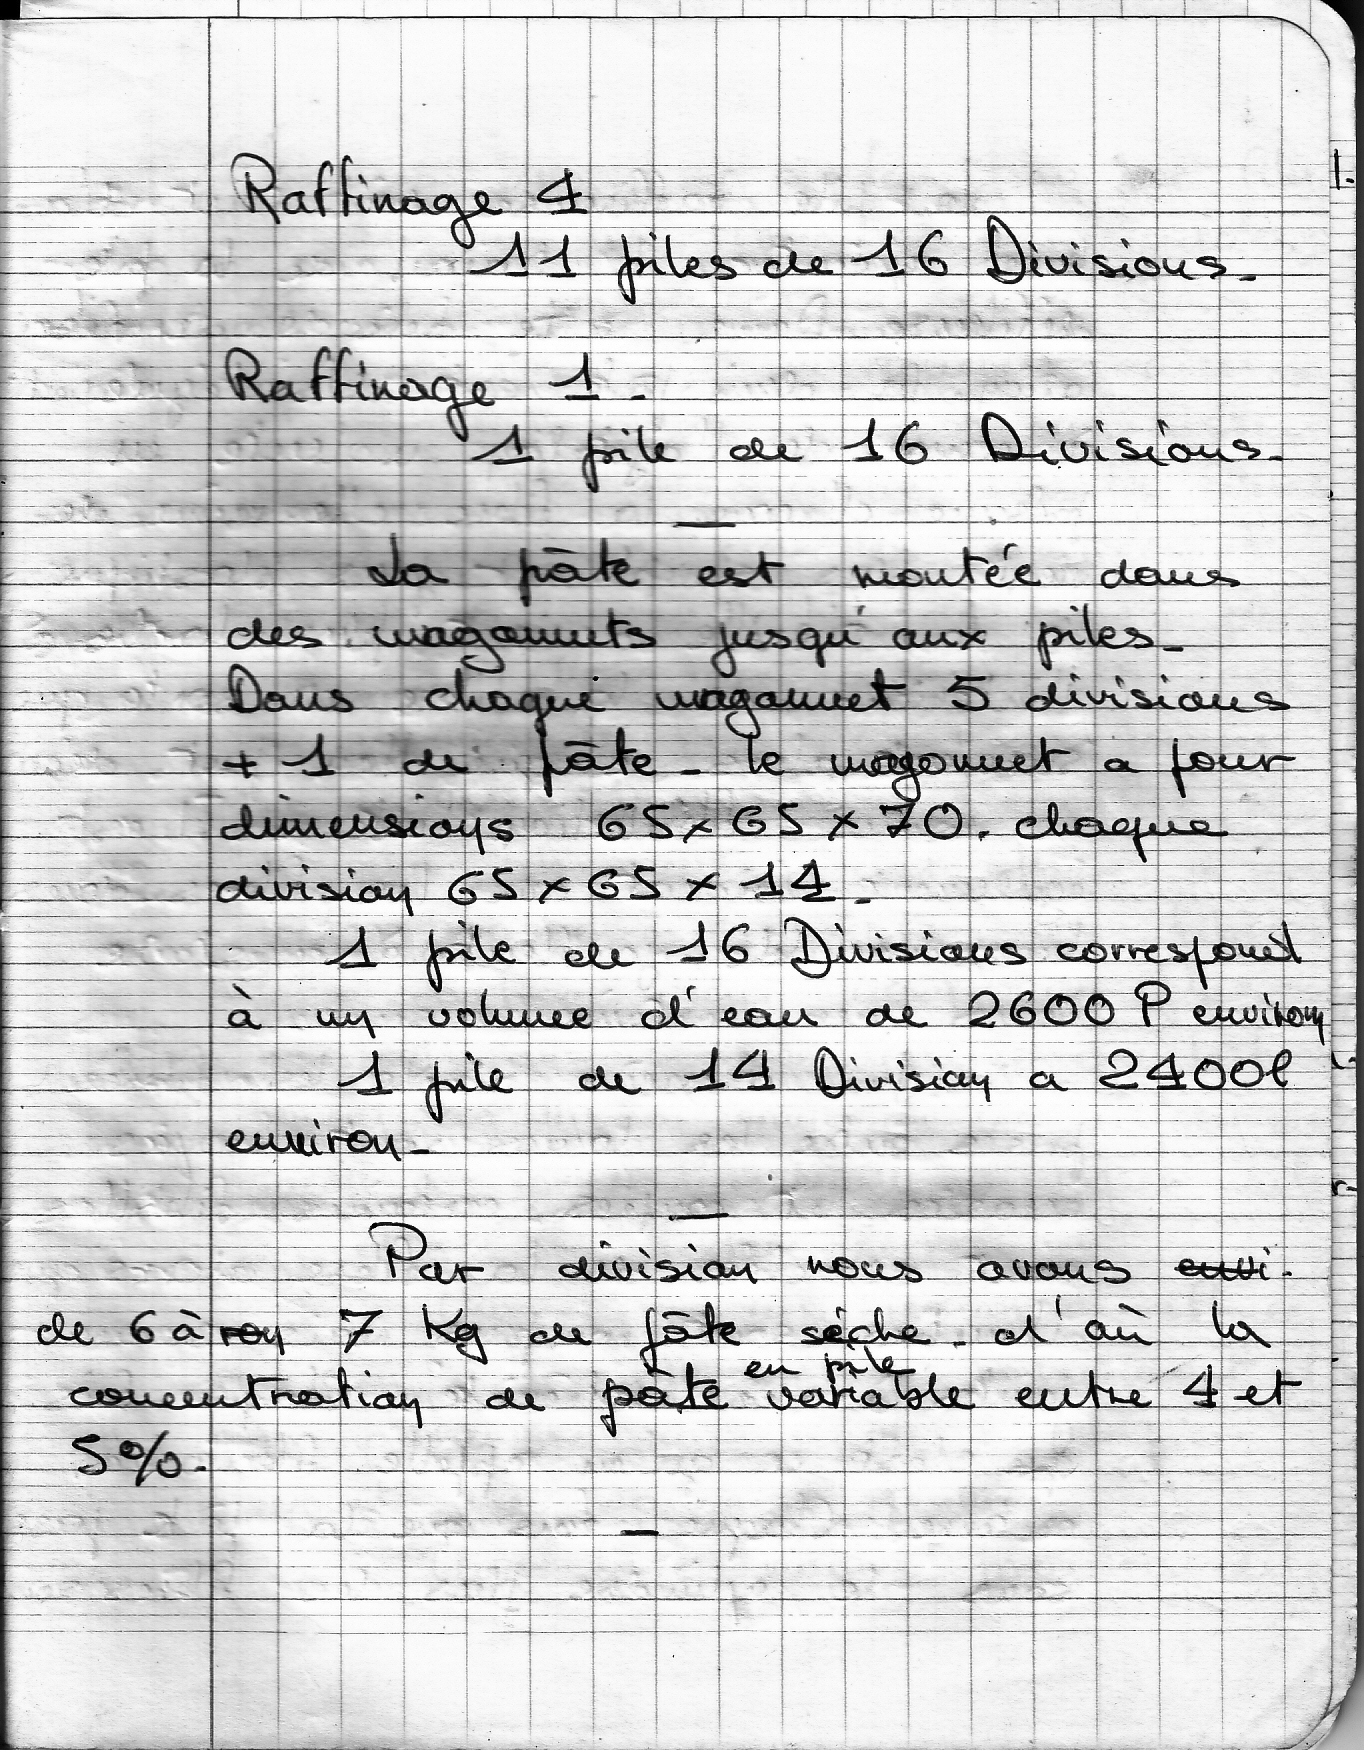 Raffinage 4
11 piles de 16 Divisions.
Raffinage 1.
1 pile de 16 Divisions.
La pâte est montée dans
des wagonnets jusqu'aux piles.
Dans chaque wagonnet 5 divisions
+ 1 de pâte. le wagonnet a pour
dimensions 65 x 65 x 70. chaque
division 65 x 65 x 14.
1 pile de 16 Divisions correspond
à un volume d'eau de 2600 l environ
1 pile de 14 Division a 2400 l
environ.
Par division nous avons envi-
de 6 à ron 7 Kg de pâte sèche. d'où la
en pile
concentration de pâte variable entre 4 et
5%.